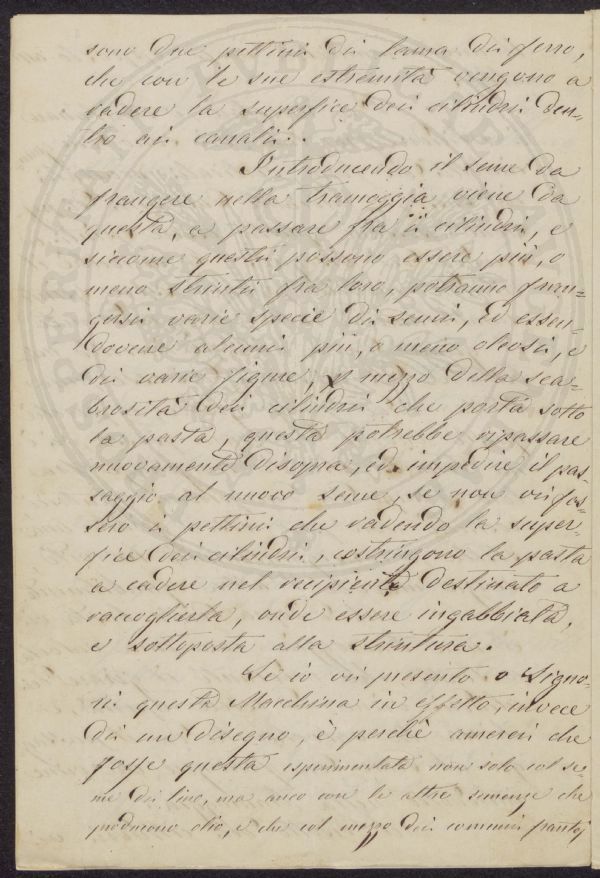 sono due pettini di lama di ferro,
che con le sue estremità vengono a
radere la superfice dei cilindri den-
tro ai canali.
Introducendo il seme da
frangere nella tramoggia viene da
questa, a passare fra i cilindri, e
siccome questi possono essere più, o
meno strinti fra loro, potranno fran-
gersi varie specie di semi, ed essen-
dovene alcuni più, o meno oleosi, e
di varie figure, a mezzo della sca-
brosità dei cilindri che porta sotto
la pasta, questa potrebbe ripassare
nuovamente disopra, ed impedire il pas-
saggio al nuovo seme, se non vi fos-
sero i pettini che radendo la super-
fice dei cilindri, costringono la pasta
a cadere nel recipiente destinato a
raccoglierla, onde essere ingabbiata,
e sottoposta alla strintura.
Se io vi presento o Signo-
ri questa Macchina in effetto, invece
di un disegno, è perchè amerei che
fosse questa isperimentata non solo col se-
me di lino, ma anco con le altre semenze che
producono olio, e che col mezzo dei comuni frantoj